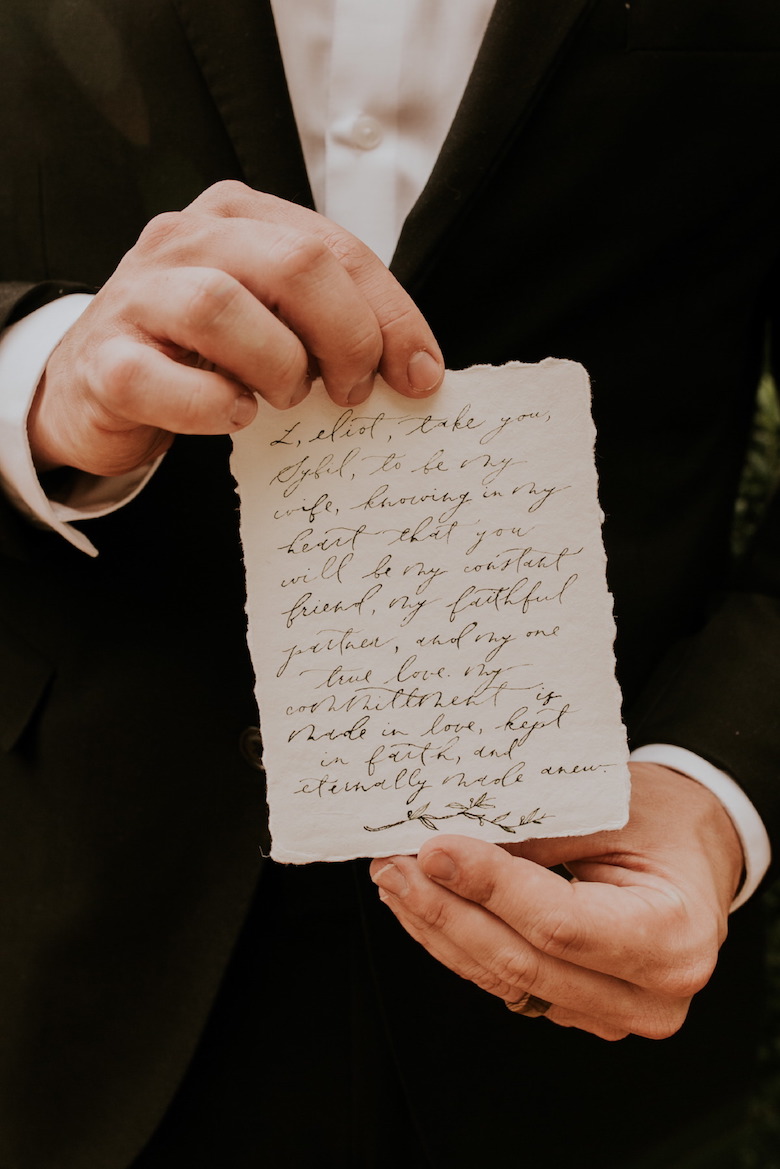 I, eliot, take you,
Sybil, to be my
wife, knowing in my
heart that you
will be my constant
friend, my faithful
partner, and my one
true love. my
committment is
made in love, kept
in faith, and
eternally made anew.